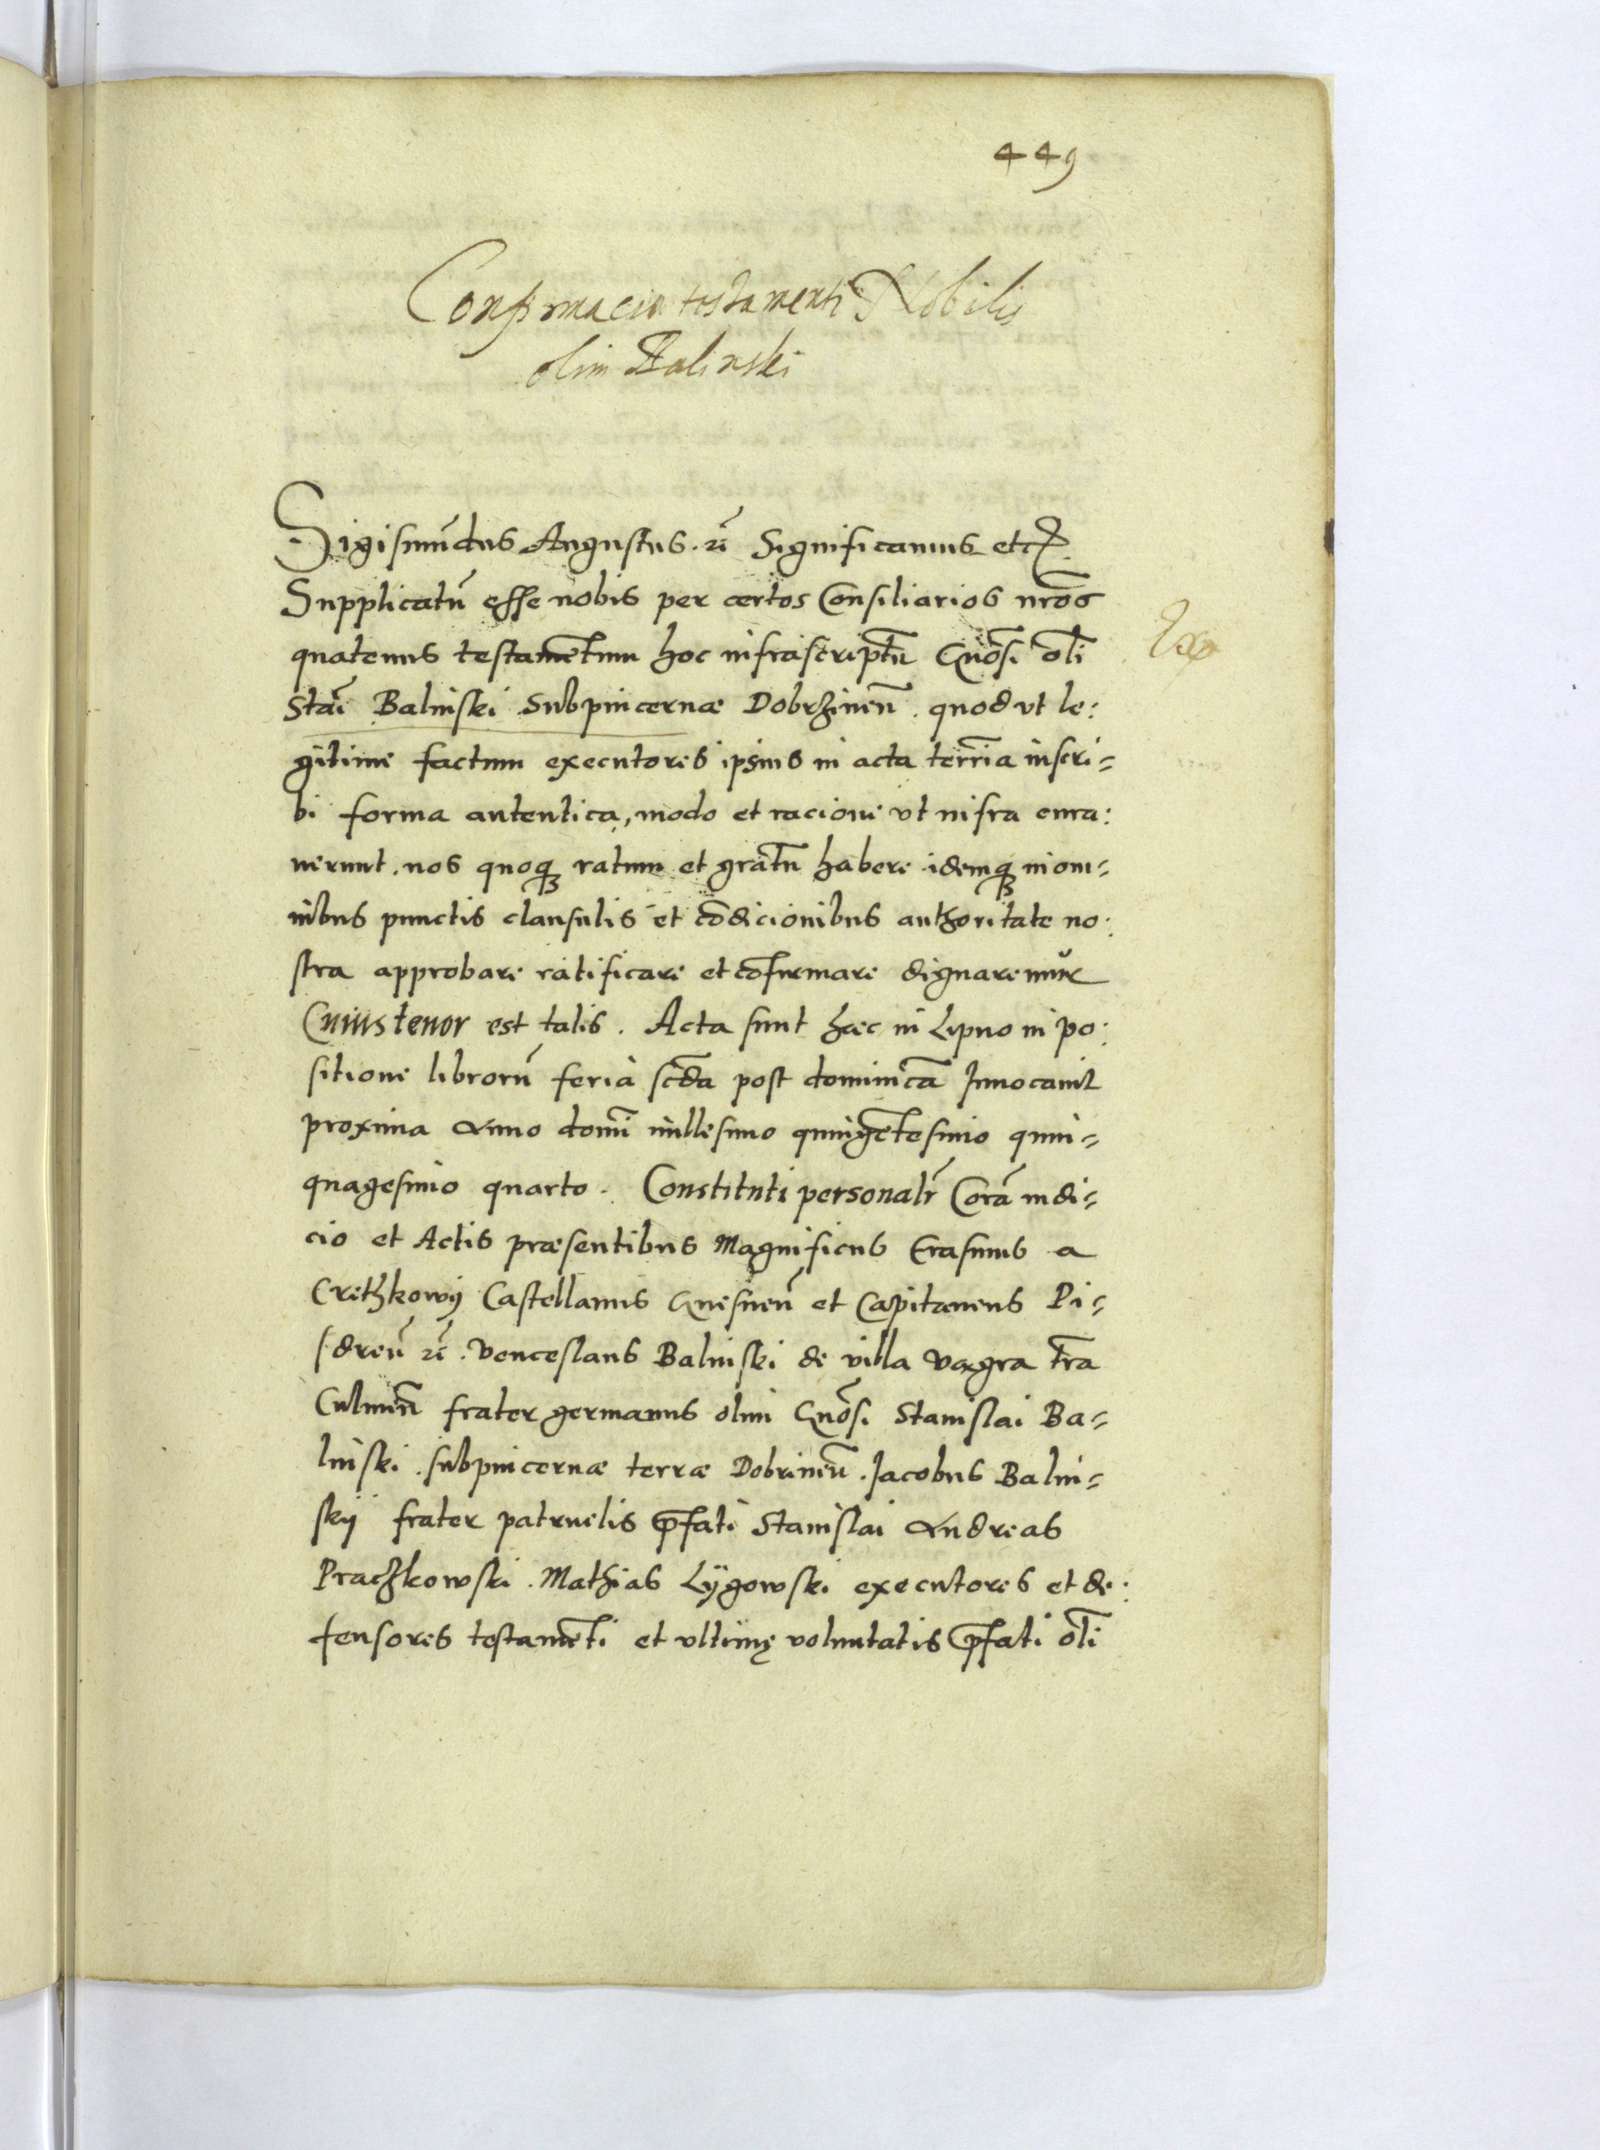 449
Confirmacio testamenti Nobilis
olim Balinski
Sigismu̅dus Augustus. rc̅ Significamus etc
Supplicatu̅ esse nobis per certos Consiliarios nr̅os
quatenus testame̅tum hoc infrascriptu̅ Gn̅osi oli̅
Stai̅ Balinski Subpincernæ Dobrzinen̅. quod ut le:
gitime factum executores ipsius in acta terr̅ia inscri=
bi forma autentica, modo et racione ut infra cura:
uerunt. nos quoqꝫ ratum et gratu̅ habere idemqꝫ in om=
nibus punctis clausulis et co̅dicionibus authoritate no:
stra approbare ratificare et co̅firmare dignaremur
Cuius tenor est talis. Acta sunt hæc in Lipno in po:
sitione libroru̅ feria sc̅da post dominica̅ Inuocauit
proxima Anno domi̅ millesimo quinge̅tesimo quin=
quagesimo quarto. Constituti personalr̅ Cora̅ iudi=
cio et Actis præsentibus Magnificus Erasmus a
Crethkowy Castellanus Gnesnen̅ et Capitaneus Pi=
sdren̅ rc̅. Venceslaus Balinski de villa Vagra tr̅a
Culmen̅ frater germanus olim Gn̅osi Stanislai Ba=
linski. subpincernæ terræ Dobrinen̅. Jacobus Balin=
skij frater patruelis p̅fati Stanislai Andreas
Praczkowski. Mathias Lÿgowski executores et de:
fensores testame̅ti et ultimę voluntatis p̅fati oli̅